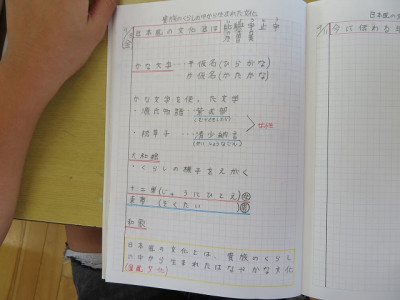 貴族のくらしの中から生まれた文化
日本風の文化とは
かな文字…平仮名(ひらがな)
片仮名(かたかな)
かな文字を使った文学
・源氏物語…紫式部
(むらさきしきぶ)
・枕草子…清少納言
(せいしょうなごん)
女性
大和絵
・くらしの様子をえがく
十二単(じゅうにひとえ)女
束帯(そくたい)男
和歌
日本風の文化とは、貴族のくらし
の中から生まれたはなやかな文化
(国風文化)
日本風の
今に伝わる